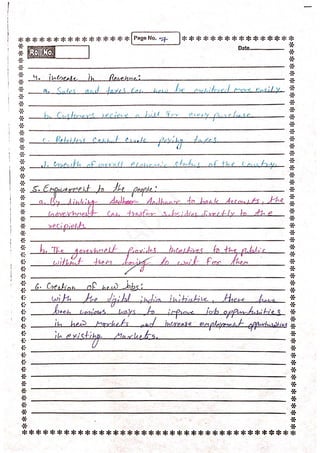 Page No.
Date
Ro. No.
4. Increase in Revenue:
a. Sales and taxes can now be monitored more easily
b. Customers recieve a bill for every purchase
c. Retailers cannot evade paying taxes
d. Growth of overall economic status of the country.
5. Empowerment to the people:
a. By linking Aadhaar to bank accounts, the
Government can transfer subsidies directly to the
recipients
b. The government provides incentives to the public
without them having to wait for them
6. Creation of new jobs:
with the digital india initiative, there have
been various ways to improve job oppurtunities
in new markets and increase employment oppurtunities
in existing markets.